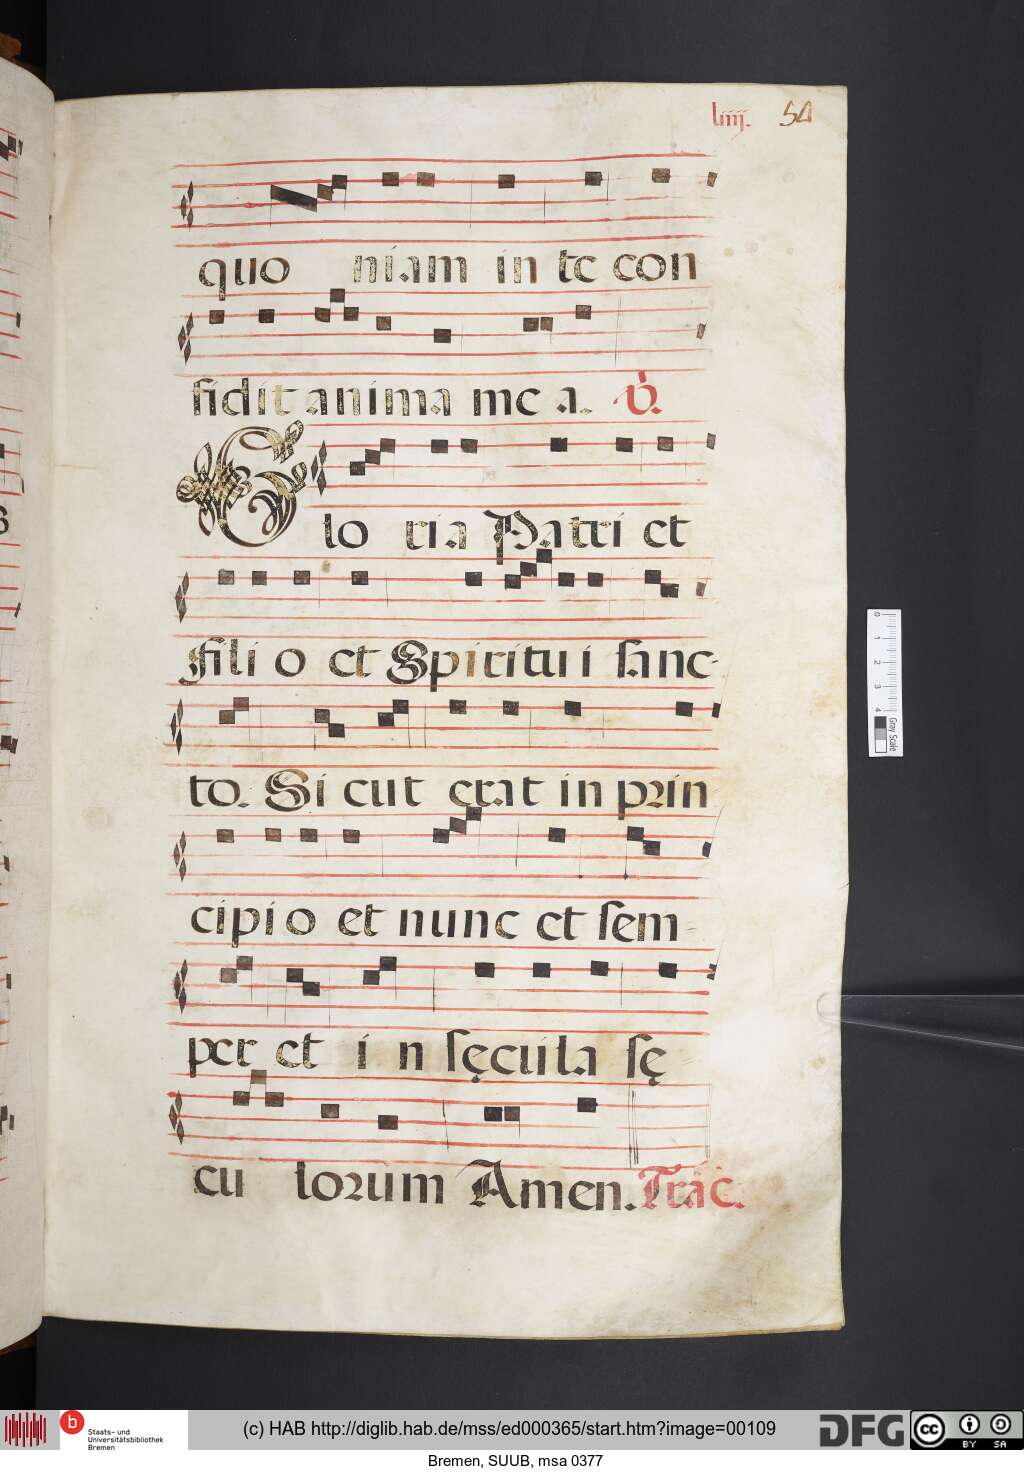 liiij. 54
quo niam in te con
fidit anima me a. V.
Glo ria Patri et
Fili o et Spiritui sanc-
to. Si cut erat in prin
cipi o et nunc et sem =
per et i n sęcula sę
cu lorum Amen. Tråc.
0 1 2 3 4 Gray Scale
b Staats- und Universitätsbibliothek Bremen
(c) HAB http://diglib.hab.de/mss/ed000365/start.htm?image=00109
DFG cc BY SA
Bremen, SUUB, msa 0377